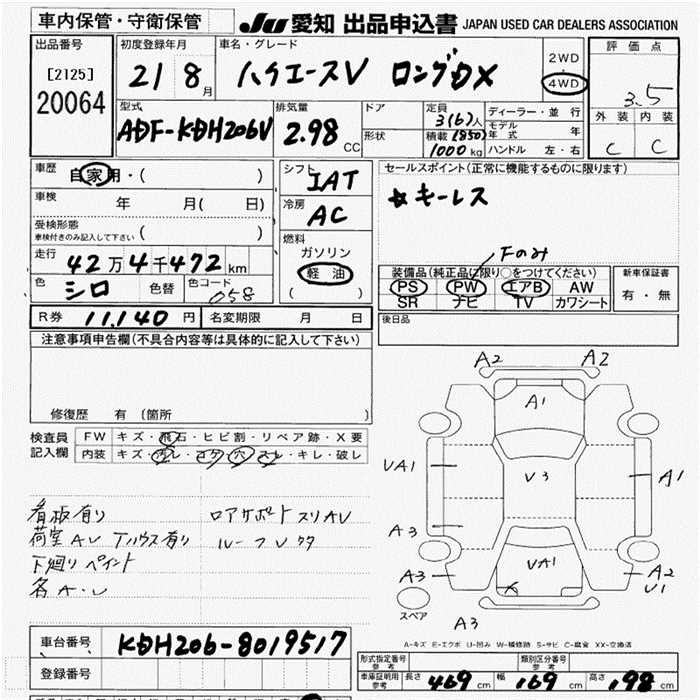 車内保管・守衛保管 JU 愛知 出品申込書 JAPAN USED CAR DEALERS ASSOCIATION
出品番号
[2125]
20064
初度登録年月
21 8月
車名・グレード
ハイエースV ロングDX
2WD
・
4WD
評価点
3.5
外装 内装
C C
型式
ADF-KDH206V
排気量
2.98 CC
ドア
形状
定員
3(6)人
積載 (850)
1000kg
ディーラー・並行
モデル年式 年
ハンドル 左・右
車歴
自家用・( )
車検
年 月( 日)
受検形態
車検付きのみ記入して下さい ( )
走行
42万4千472km
色
シロ
色替
色コード
058
シフト
IAT
冷房
AC
燃料
ガソリン
軽油
( )
セールスポイント(正常に機能するものに限ります)
☆キーレス
Fのみ
装備品(純正品に限り○をつけてください)
PS PW エアB AW
SR ナビ TV カワシート
新車保証書
有・無
R券 11,140円 名変期限 月 日
後日品
注意事項申告欄(不具合内容等は具体的に記入して下さい)
修復歴 有 (箇所 )
検査員
記入欄
FW キズ・飛石・ヒビ割・リペア跡・X要
内装 キズ・汚レ・コゲ・穴・スレ・キレ・破レ
看板有り ロアサポートスリAU
荷室AU Tハウス有り ルーフUクタ
下廻りペイント
各A・U
A2 A2
A1
UA1 V3 A1
A3
A3 UA1 A2
U1
スペア
A3
A-キズ E-エクボ U-凹み W-補修跡 S-サビ C-腐食 XX-交換済
車台番号 KDH206-8019517
登録番号
形式指定番号
参考
類別区分番号
参考
車庫証明用
参考
長さ 469cm 幅 169cm 高さ 198cm